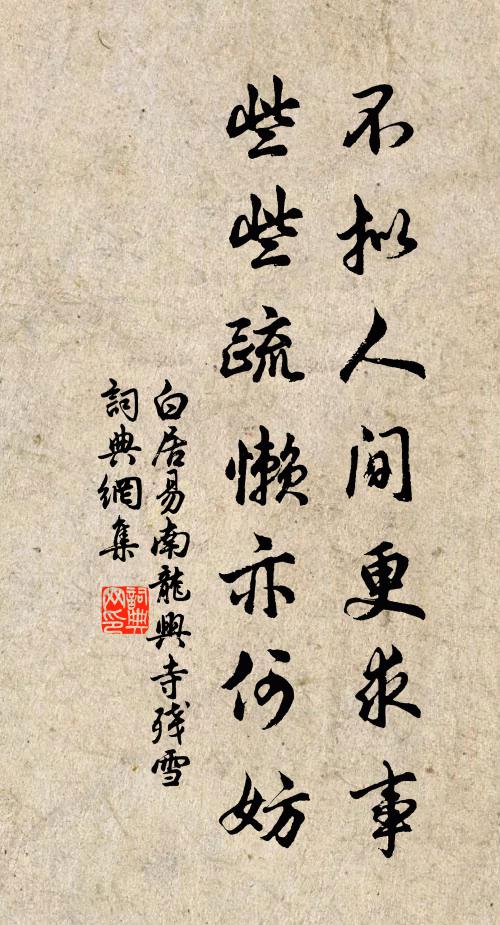 不拟人间更求事
些些疏懒亦何妨
白居易南龍興寺残雪
詞典網集
詞典网印